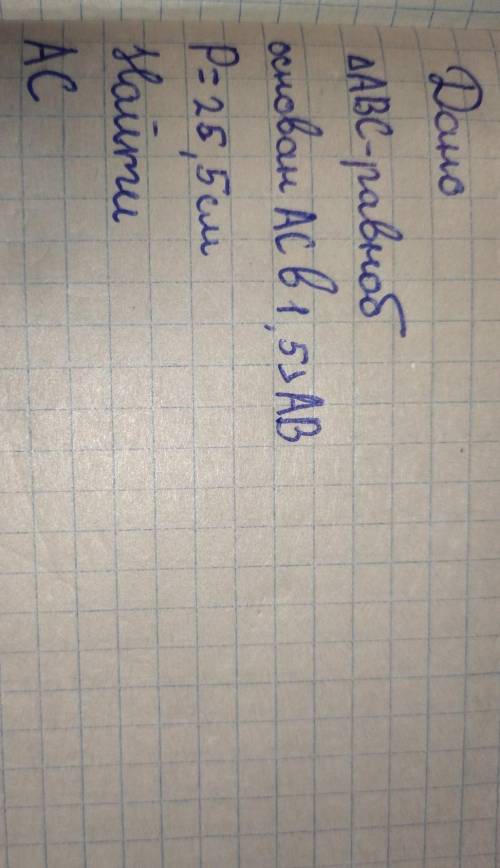 Дано
△ABC-равноб
основан AC в 1,5> AB
P=25,5см
Найти
AC